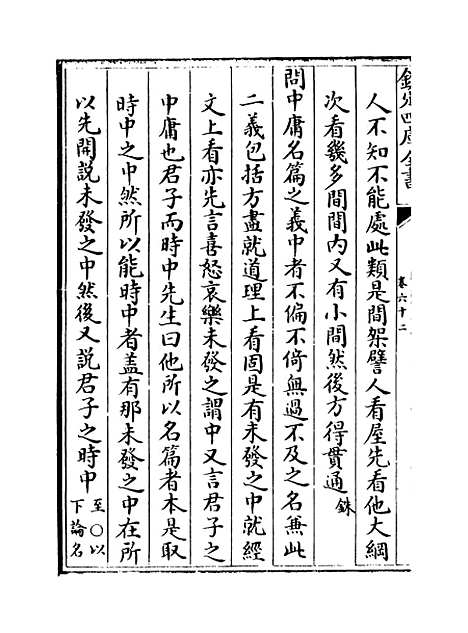 欽定四庫全書
卷六十二
人不知不能處此類是間架譬人看屋先看他大綱
次看幾多間間內又有小間然後方得貫通銖
問中庸名篇之義中者不偏不倚無過不及之名兼此
二義包括方盡就道理上看固是有未發之中就經
文上看亦先言喜怒哀樂未發之謂中又言君子之
中庸也君子而時中先生曰他所以名篇者本是取
時中之中然所以能時中者蓋有那未發之中在所
以先開說未發之中然後又說君子之時中至〇以下論名